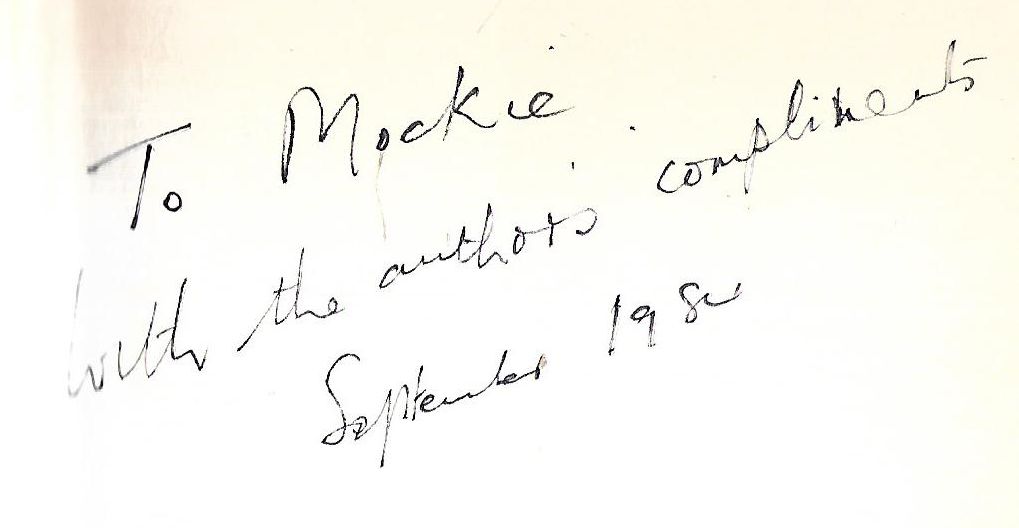 To Mockie
with the author's compliments
September 198